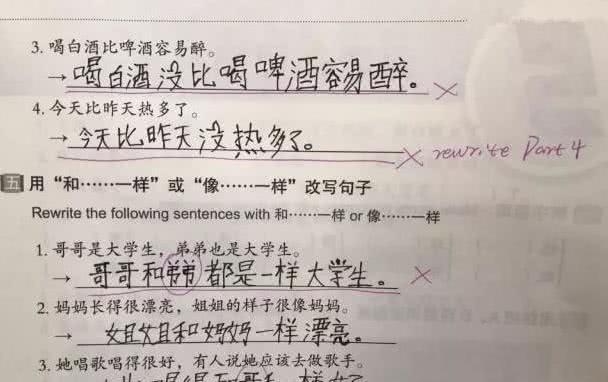 3. 喝白酒比啤酒容易醉。
→ 喝白酒没比喝啤酒容易醉。 ×
4. 今天比昨天热多了。
→ 今天比昨天没热多了。 × rewrite Part 4
五 用“和……一样”或“像……一样”改写句子
Rewrite the following sentences with 和……一样 or 像……一样
1. 哥哥是大学生，弟弟也是大学生。
→ 哥哥和弟弟都是一样大学生。 ×
2. 妈妈长得很漂亮，姐姐的样子很像妈妈。
→ 姐姐和妈妈一样漂亮。
3. 她唱歌唱得很好，有人说她应该去做歌手。